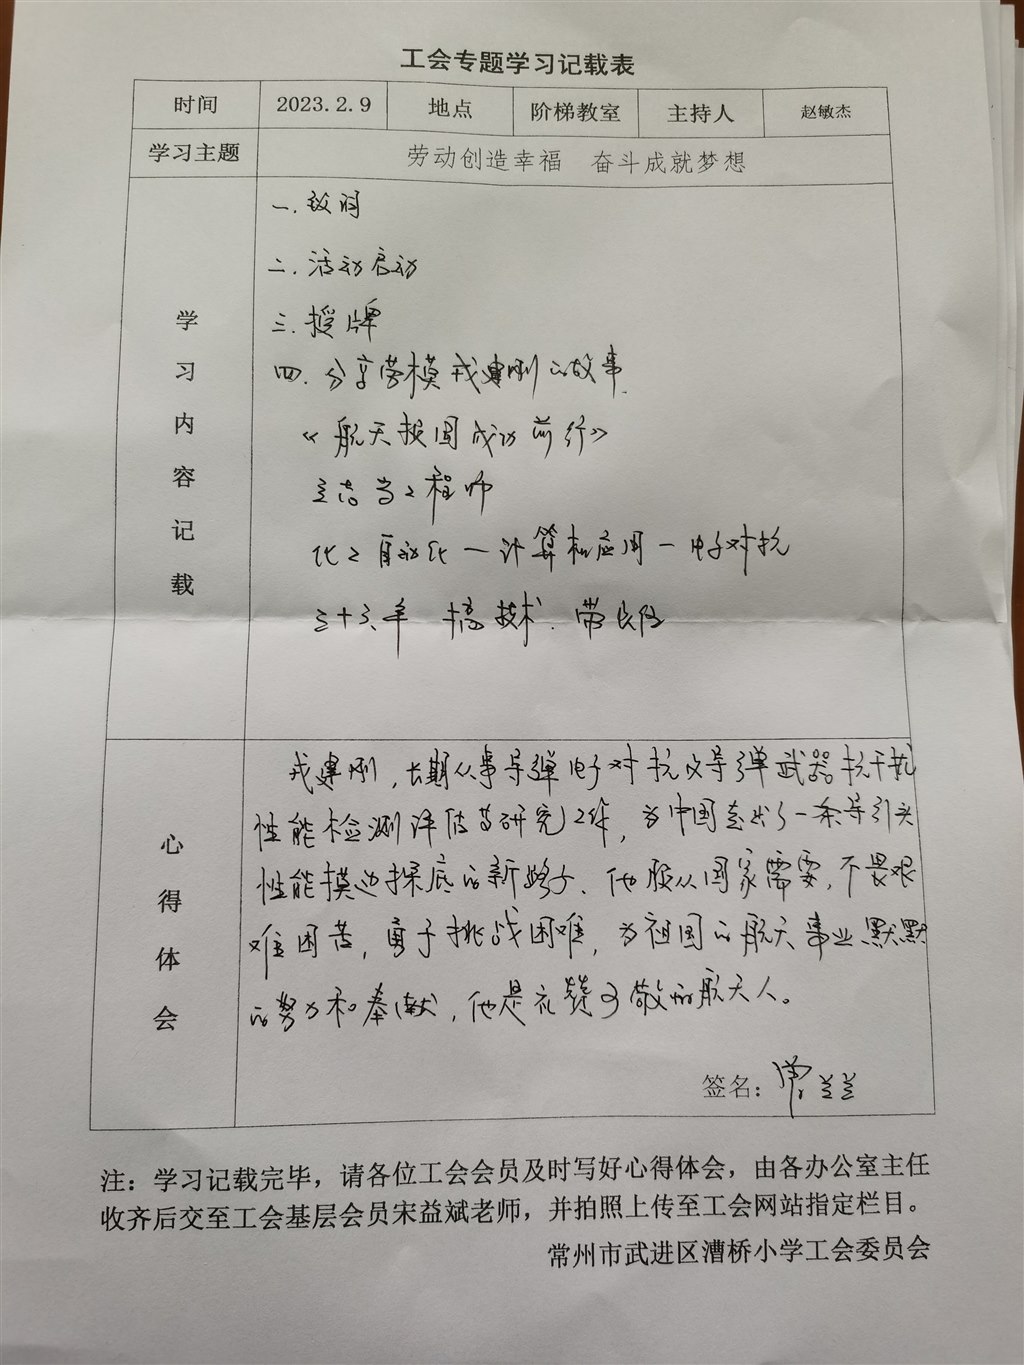 工会专题学习记载表
时间 2023.2.9 地点 阶梯教室 主持人 赵敏杰
学习主题 劳动创造幸福 奋斗成就梦想
学习内容记载
一.致词
二.活动启动
三.授牌
四.分享劳模戎建刚的故事
《航天报国成功前行》
工程师
化工自动化一计算机应用一电子对抗
三十六年 搞技术.带团队
心得体会
戎建刚,长期从事导弹电子对抗及导弹武器抗干扰
性能检测评估与研究工作,为中国走出了一条导引头
性能摸边探底的新路子.他服从国家需要,不畏艰
难困苦,勇于挑战困难,为祖国的航天事业默默
的努力和奉献,他是礼赞可敬的航天人。
签名:
注：学习记载完毕，请各位工会会员及时写好心得体会，由各办公室主任
收齐后交至工会基层会员宋益斌老师，并拍照上传至工会网站指定栏目。
常州市武进区漕桥小学工会委员会